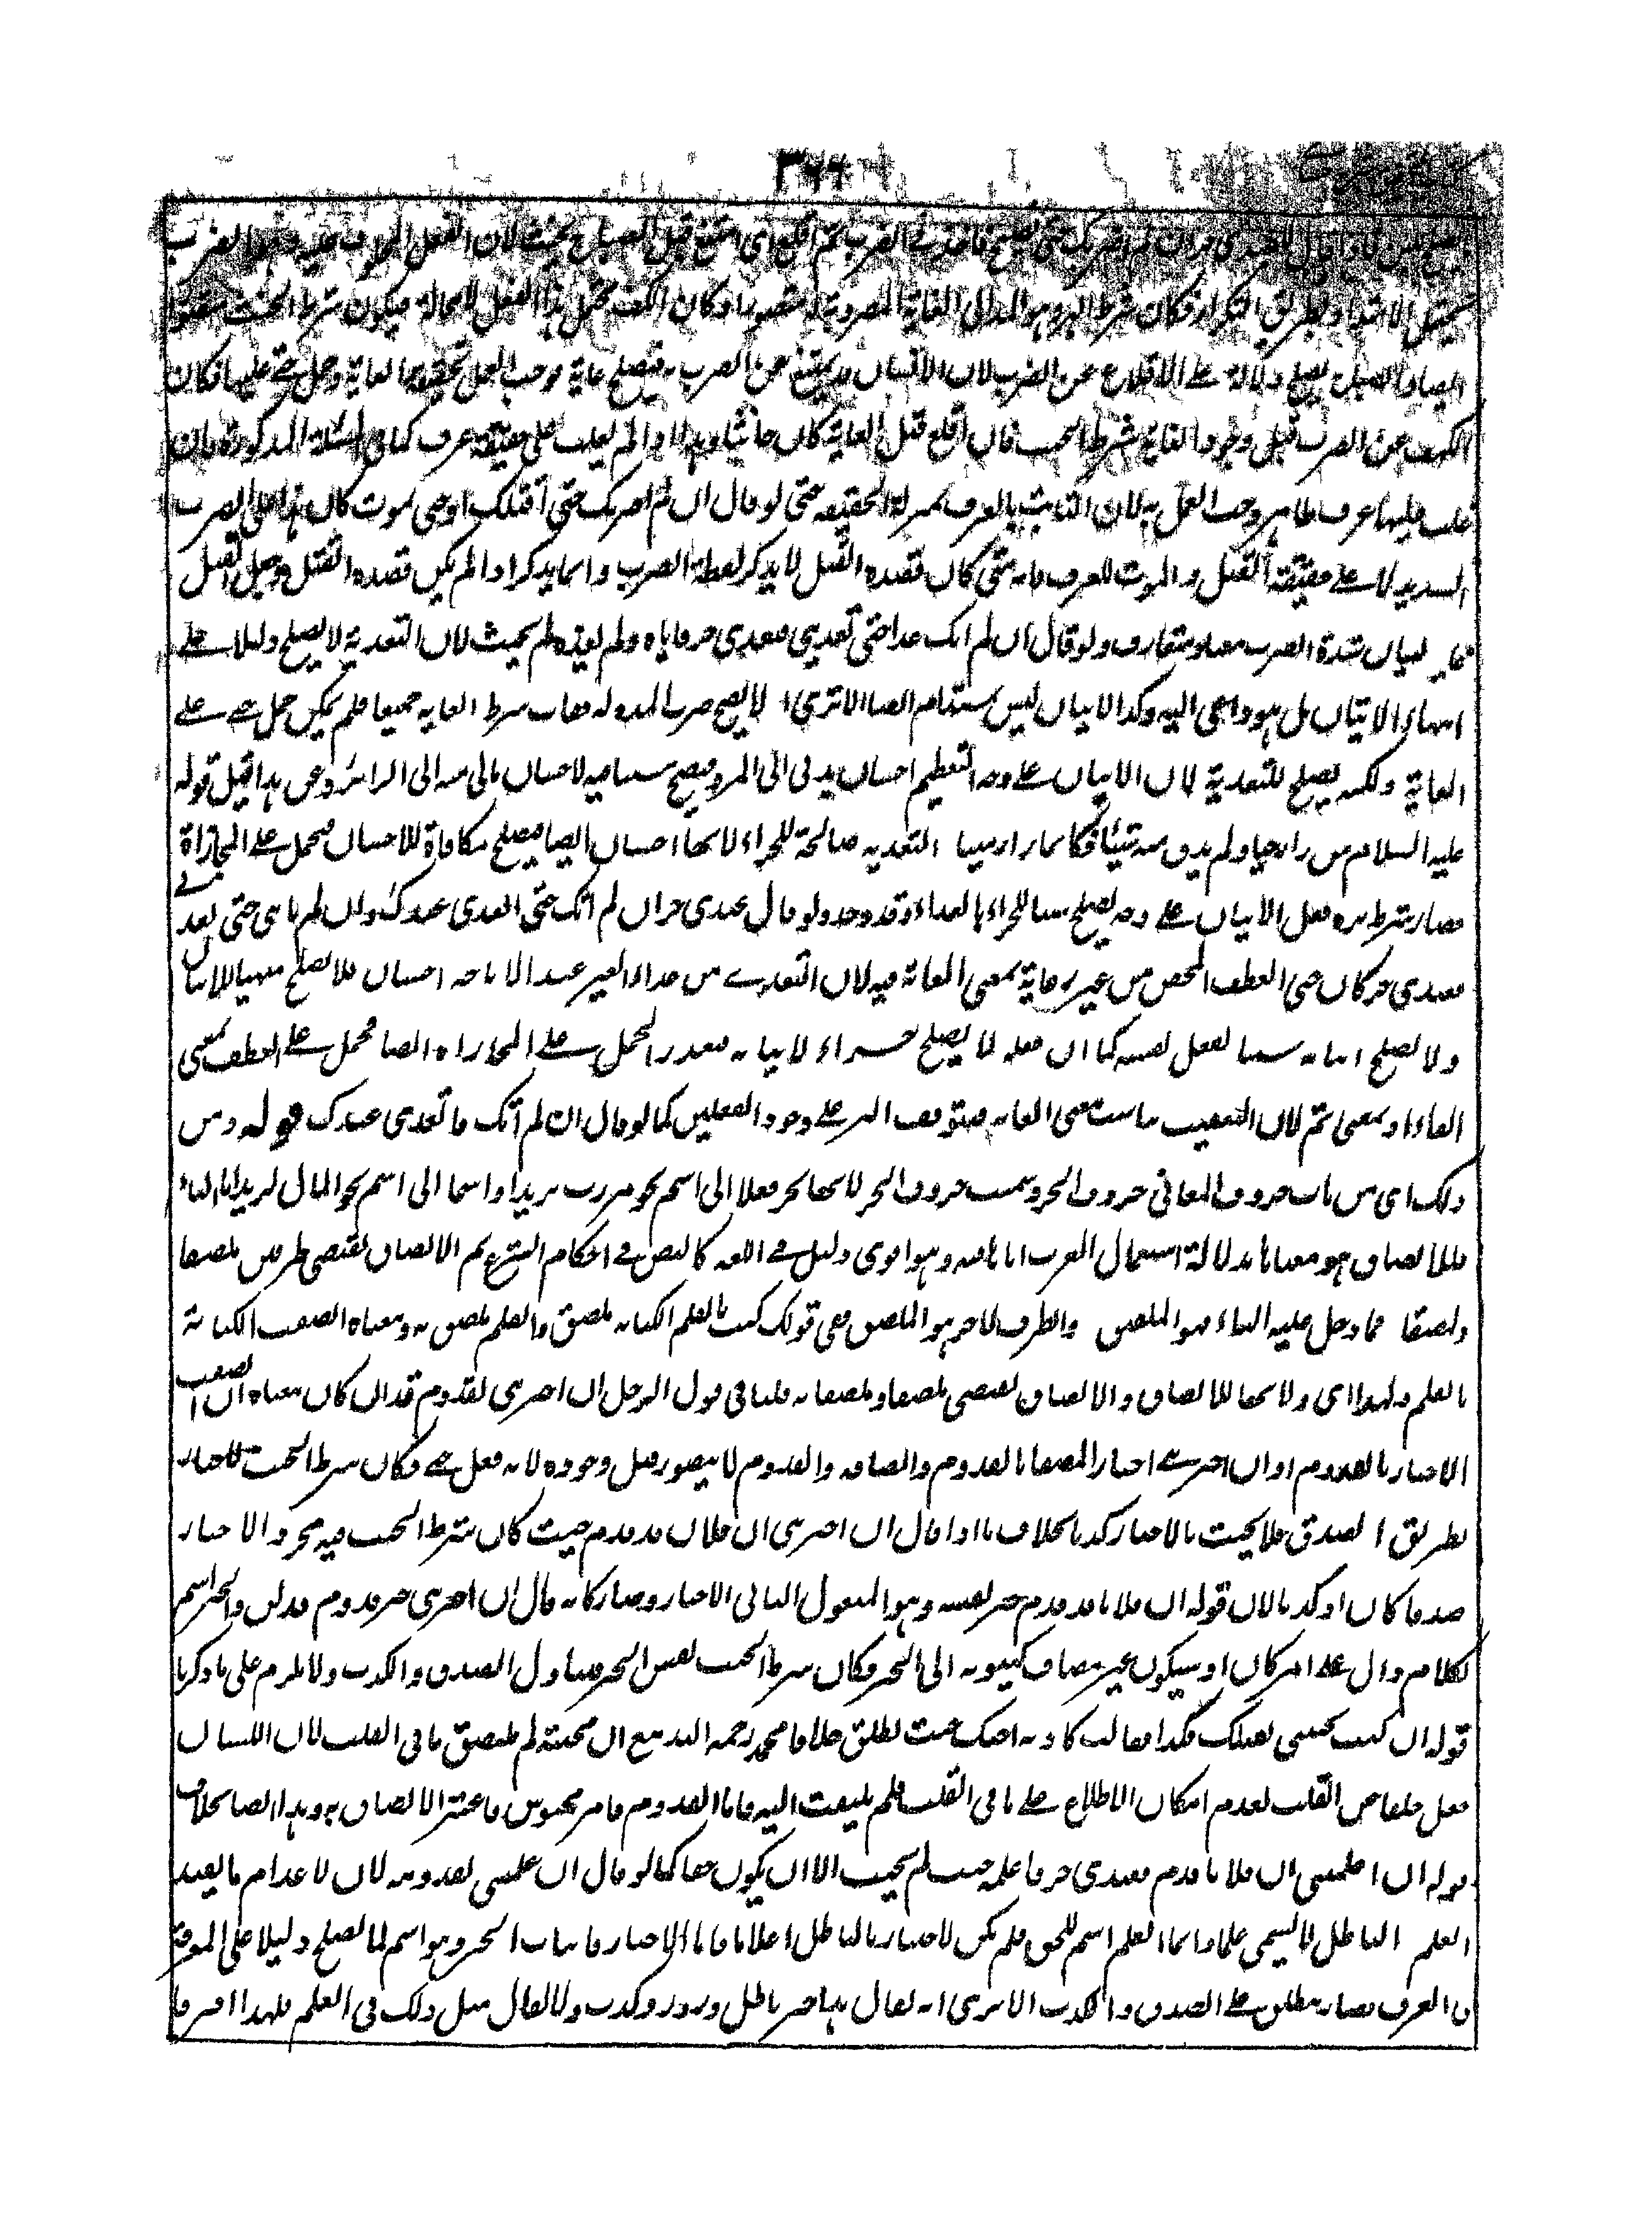 ٣٦٦
فاذا قال عبدى حر ان لم اضربك حتى تصيح فاخذ فى الضرب ثم اقلع اى امتنع قبل الصياح يحنث لان الفعل المحلوف عليه وهو الضرب
يحتمل الامتداد بطريق التكرار فكان شرط البر هو المد الى الغاية المضروبة له متصورا وكان الكف محتمل هذا الفعل لا محالة فيكون شرط الحنث متصورا
ايضا والصياح يصلح دلالة على الاقلاع عن الضرب لان الانسان قد يمتنع عن الضرب به فيصلح غاية فوجب العمل بحقيقة الغاية وحمل حتى عليها فكان
الكف عن الضرب قبل وجود الغاية شرط الحنث فان اقلع قبل الغاية كان حانثا وهذا اذا لم يغلب على حقيقة عرف كما فى الامثلة المذكورة فان
غلب عليها عرف ظاهر وجب العمل به لان الثابت بالعرف بمنزلة الحقيقة حتى لو قال ان لم اضربك حتى اقتلك او حتى تموت كان هذا على الضرب
الشديد لا على حقيقة القتل والموت للعرف فانه متى كان قصده القتل لا يذكر لفظة الضرب وانما يذكر اذا لم يكن قصده القتل وجعل القتل
غاية لبيان شدة الضرب معتاد متعارف ولو قال ان لم آتك غدا حتى تغدينى فعبدى حر فاتاه ولم يغده لم يحنث لان التغدية لا يصلح دليلا على
انتهاء الاتيان بل هو داعى اليه وكذا الاتيان ليس بمستدام ايضا الا ترى ا لا يصح ضرب المدة له ففات شرط الغاية جميعا فلم يمكن حمل حتى على
الغاية ولكنه يصلح للتغدية لان الاتيان على وجه التعظيم احسان بدنى الى المزور فيصح سببا فيه لاحسان مالى منه الى الزائر وعن هذا قيل قوله
عليه السلام من زار حيا ولم يذق منه شيئا فكانما زار ميتا التغدية صالحة للجزاء لانها احسان ايضا فيصلح مكافاة للاحسان فحمل على المجازاة
فصار شرط بره فعل الاتيان على وجه يصلح سببا للجزاء بالغداء وقد وجد ولو قال عبدى حر ان لم آتك حتى اتغدى عندك وان لم تاتنى حتى تغدى
فعبدى حر كان حتى للعطف المحض من غير رعاية بمعنى الغاية فيه لان التغدى من غداء الغير عند الاباحة احسان فلا يصلح منهيا للاتيان
ولا يصلح اتيانه سببا لفعل نفسه كما ان فعله لا يصلح جزاء لاتيانه فتعذر الحمل على المجازاة ايضا فحمل على العطف بمعنى
الفاء او بمعنى ثم لان التعقيب يناسب معنى الغاية فيتوقف البر على وجود الفعلين كما لو قال ان لم آتك فاتغدى عندك قوله ومن
ذلك اى من باب حروف المعانى حروف الجر وسميت حروف الجر لانها تجر فعلا الى اسم نحو مررت بزيد او اسما الى اسم نحو المال لزيد اما الباء
فللالصاق هو معناها بدلالة استعمال العرب اياها فيه وهو اقوى دليل فى اللغة كالنص فى احكام الشرع ثم الالصاق يقتضى طرفين ملصقا
وملصقا فما دخل عليه الباء فهو الملصق والطرف الآخر هو الملصق ففى قولك كتبت بالقلم الكتابة ملصق والقلم ملصق به ومعناه الصقت الكتابة
بالقلم ولهذا اى ولانها للالصاق والالصاق يقتضى ملصقا وملصقا به قلنا فى قول الرجل ان اخبرتنى بقدوم فلان كان معناه ان الصقت
الاخبار بالقدوم او ان اخبرتنى اخبارا ملصقا بالقدوم والصاقه والقدوم لا يتصور قبل وجوده لانه فعل حسى فكان شرط الحنث الاخبار
بطريق الصدق فلا يحنث بالاخبار كذبا بخلاف ما اذا قال ان اخبرتنى ان فلانا قد قدم حيث كان شرط الحنث فيه مجرد الاخبار
صدقا كان او كذبا لان قوله ان فلانا قد قدم خبر بنفسه وهو المفعول الثانى للاخبار وصار كانه قال ان اخبرتنى خبر قدوم فلان والخبر اسم
لكلام دال على امر كان او سيكون غير مضاف كينونته الى الخبر فكان شرط الحنث نفس الخبر فيتناول الصدق والكذب ولا يلزم على ما ذكرنا
قوله ان كنت تحبينى بقلبك فكذا فقالت كاذبة احبك حيث تطلق خلافا لمحمد رحمه الله مع ان محبته لم يلتصق بما فى القلب لان اللسان
جعل خلفا عن القلب لعدم امكان الاطلاع على ما فى القلب فلم يلتفت اليه فاما القدوم فامر محسوس فاعتبر الالصاق به وهذا ايضا بخلاف
قوله ان اعلمتنى ان فلانا قدم فعبدى حر فاعلمه حيث لم يحنث الا ان يكون حقا كما لو قال ان اعلمتنى بقدومه لان الاعلام ما يفيد
العلم الباطل لا يسمى علما وانما العلم اسم للحق فلم يكن الاخبار بالباطل اعلاما فاما الاخبار فاثبات الخبر وهو اسم لما يصلح دليلا على المعرفة
فى العرف فصار مطلق على الصدق والكذب الا ترى انه يقال هذا خبر باطل وزور وكذب ولا يقال مثل ذلك فى العلم فلهذا افترقا